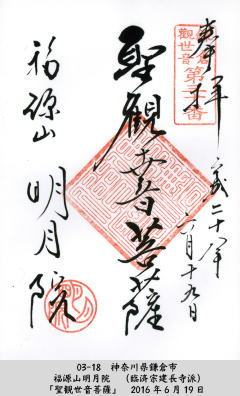 奉拝
平成二十八年
六月十九日
聖觀世音菩薩
福源山
明月院
03-18 神奈川県鎌倉市
福源山明月院 (臨済宗建長寺派)
「聖観世音菩薩」 2016年6月19日